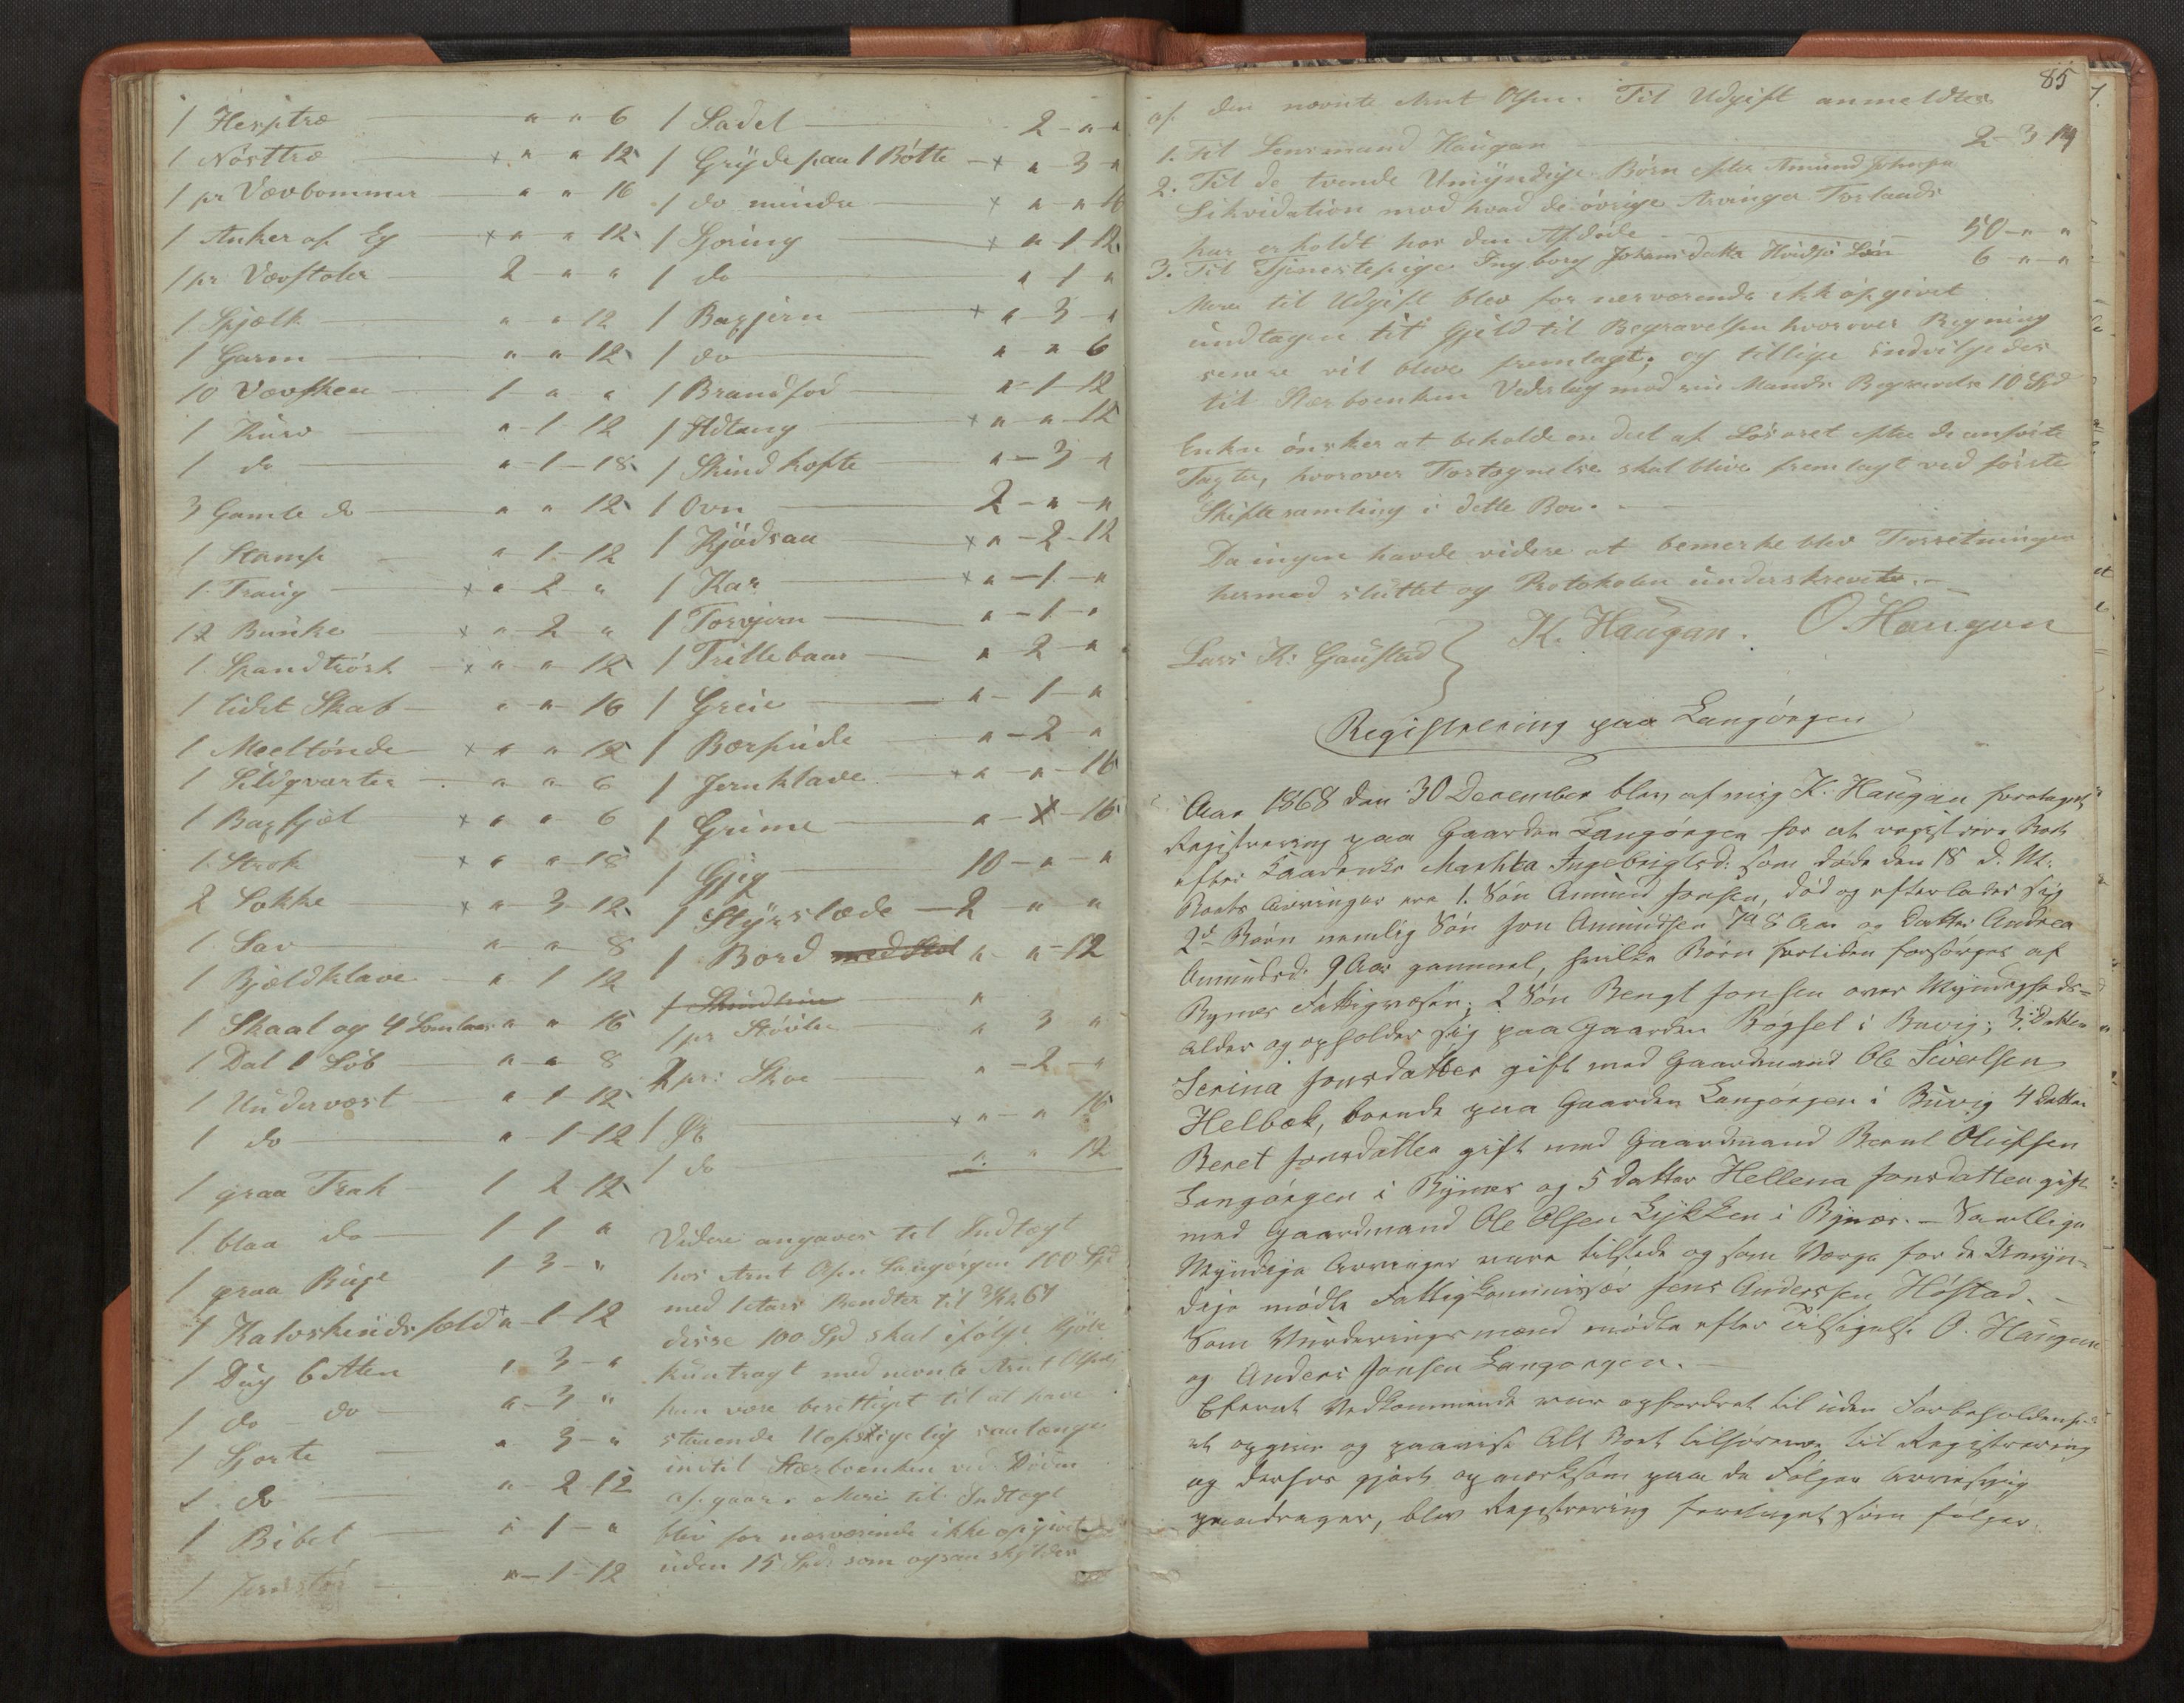 1 Hesptræ — " " 6
1 Nösttræ — x " " 12
1 pr Vævbommer — " " 16
1 Anker af Eg — x " " 12
1 pr. Vævstoler — 2 " "
1 Spjælk — " " 12
1 Garm — " " 12
10 Vævskee — 1 " "
1 Kurv — " 1 12
1 do — " 1 - 18
3 Gamle do — " " 12
1 Stamp — " 1 - 12
1 Traug — x " 2 "
12 Bunke — x " 2 "
1 Spandtrösk — x " " 12
1 lidet Skab — " " 16
1 Meeltönde — x " " 12
1 Sildqvarter — " " 6
1 Bagfjöl — x " " 6
1. Strok — x " " 18
2 Sokke — x " 3 12
1 Sav — " " 8
1 Bjældklave — " 1 12
1 Skaal og 4 " " 16
1 Dal 1 Löb — " " 8
1 Undervæst — " 1 12
1 do — " 1 - 12
1 graa Trak — 1 2 12
1. blaa do — 1 1 "
1 graa Buxe 1 3 - "
1 Kalvskindsfæld x " 1 - 12
1 Dug 6 Alen " 3 - "
1 do - do " 3 "
1 Sjorte — " 3 - "
1 do — " 2 12
1 Bibel — " 1 - "
1 " - 1 - 12
1 Sadel — 2 - " "
1 Gryde paa 1 Bötte — x " 3 "
1 do mindre — x " " 16
1 Sporing — x " 1 12
1 do " 1 "
1 Bagjern — x " 3 - "
1 do — " " 6
1 Brandfod — " 1 - 12
1 Ildtang — x " " 12
1 Skindkofte — " - 3 - "
1 Ovn — 2 - " - "
1 Kjödsaa — x " - 2 - 12
1 Kar — x " - 1 - "
1 Torvjern — " - 1 - "
1 Trillebaar — " 2 - "
1 Greie — " - 1 - "
1 Bærpude — " - 2 - "
1 Jernklave — x " - " - 16
1 Grime — " - " - 16
1 Gjig — 10 - " - "
1 Styrslæde — 2 " "
1 Bord med Stol " " - 12
1 Skindhue — "
1 pr Stövler — " 3 "
2 pr: Skoe — " - 2 - "
1 Öx — x " - " 16
1 do " " 12
Videre angaves til Indtægt
hos Arnt Olsen Langörgen 100 Spd
med 1 Aars Rendter til 67
disse 100 Spd skal ifölge Kjöbe
kuntragt med nevnte Arnt Olsen
hun være berettiget til at have
staaende Uopsigelig saalænge
indtil Stærboenken ved Döden
afgaar. Mere til Indtægt
blev for nærværende ikke opgivet
uden 15 Spd: som ogsaa skylder
85
af den nævnte Arnt Olsen. Til Udgift anmeldtes
1. Til Lensmand Haugan — 2 - 3 - 14
2. Til de tvende Umyndige Börn efter Amund Johnsen
Likvidation mod hvad de övrige Arvinger Forlaads
har erholdt hos den Afdöde — 50 - " "
3. Til Tjenestepige Ingborg Johansdatter Hvidsjö Lön 6 " "
Mere til Udgift blev for nerværende ikke opgivet
undtagen til Gjeld til Begravelsen hvorover Regning
senere vil blive fremlagt; og tillige indvilgedes
til Stærboenken Vederlag mod sin Mands Begravelse 10 Spd
Enken önsker at beholde en deel af Lösöret efter de anförte
Taxter, hvorover Fortegnelse skal blive fremlagt ved förste
Skiftesamling i dette Boe. —
Da ingen havde videre at bemerke blev Forretningen
hermed sluttet og Protokolen underskrevet. —
Lars K: Gaustad } K. Haugan. O. Haugan
Registrering paa Langörgen
Aar 1868 den 30 December blev af mig K. Haugan foretaget
Registrering paa Gaarden Langörgen for at registrere Boet
efter Kaarenke Marhta Ingebrigtsd: som döde den 18 d. M.
Boets Arvinger ere 1. Sön Amund Jonsen, död og efterlader sig
2de Börn nemlig Sön Jon Amundsen 7 a 8 Aar og Datter Andrea
Amundsd. 9 Aar gammel, hvilke Börn fortiden forsörges af
Bynes Fattigvæsen; 2 Sön Bengt Jonsen over Myndigheds-
alder og opholder sig paa Gaarden Bögsel i Buvig; 3. Datter
Serina Jonsdatter gift med Gaardmand Ole Sivertsen
Helbæk, boende paa Gaarden Langörgen i Buvig 4 Datter
Beret Jonsdatter gift med Gaardmand Bernt Olufsen
Langörgen i Bynes og 5 Datter Hellena Jonsdatter gift
med Gaardmand Ole Olsen Lykken i Bynes. — Samtlige
Myndige Arvinger vare tilstede og som Værge for de Umyn-
dige mödte Fattigkommissær Jens Anderssen Höstad. —
Som Vurderingsmænd mödte efter Tilsigelse O. Haugan
og Anders Jonsen Langorgen.
Efterat Vedkommende var opfordret til uden Forbeholdenhed
at opgive og paavise Alt Boet tilhörende til Registrering
og derhos gjort opmærksom paa de Fölger Arvesvig
paadrager, blev Registrering foretaget som fölger.